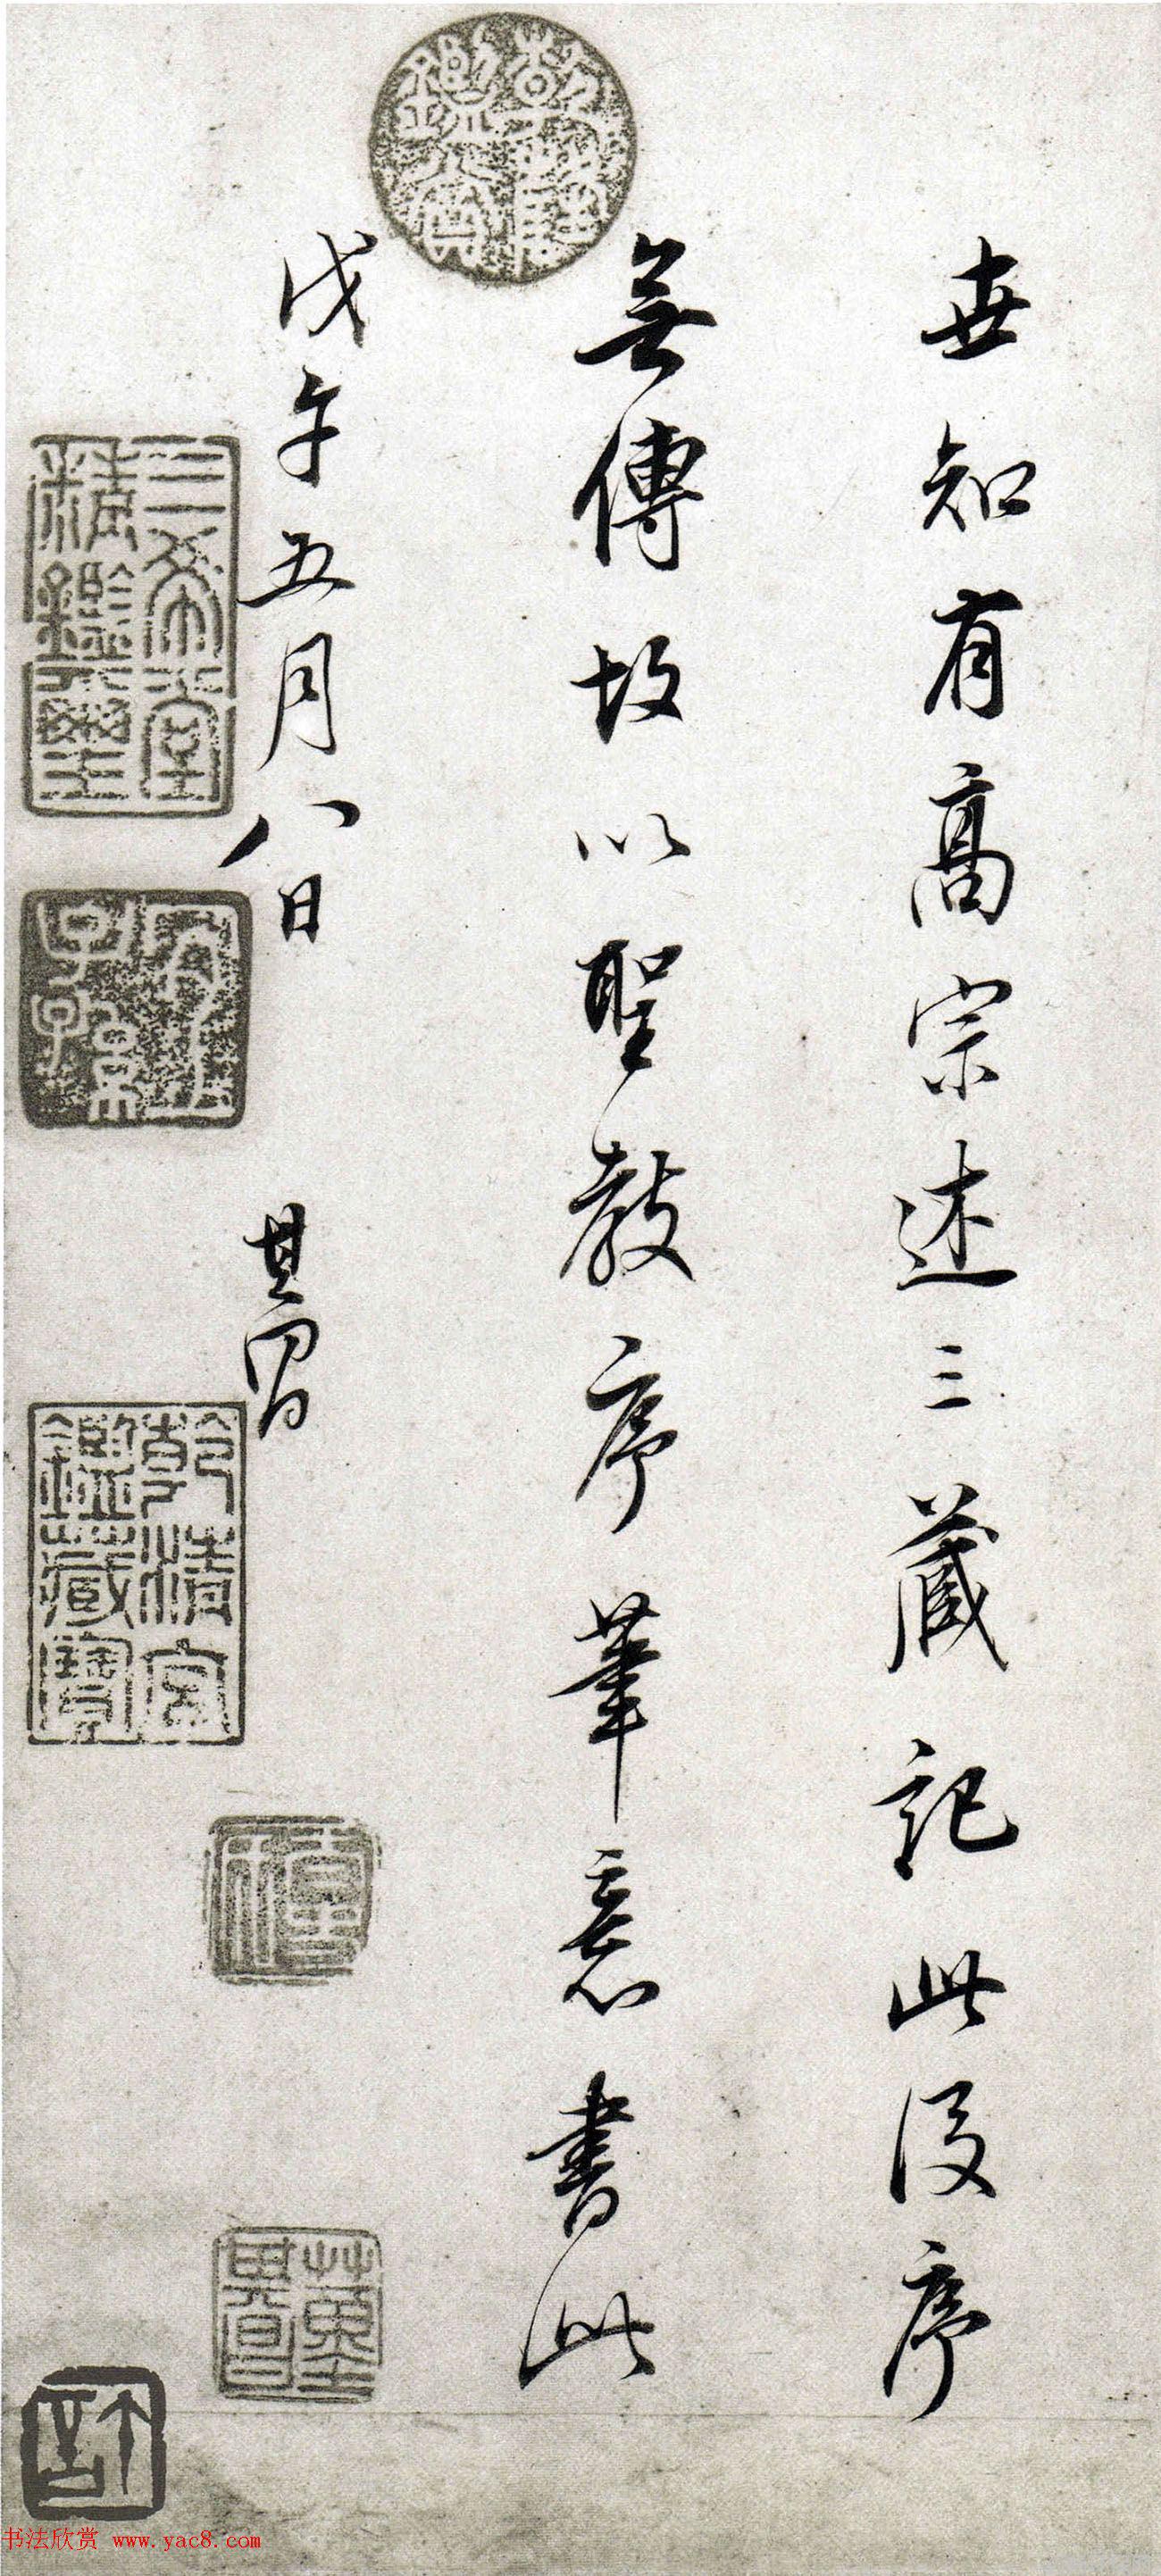 世知有高宗述三藏記此後序
無傳故以聖教序筆意書此
戊午五月八日 其昌
乾隆御覽之寶
三希堂精鑑璽
宜子孫
乾清宮鑑藏寶
董其昌
书法欣赏 www.yac8.com